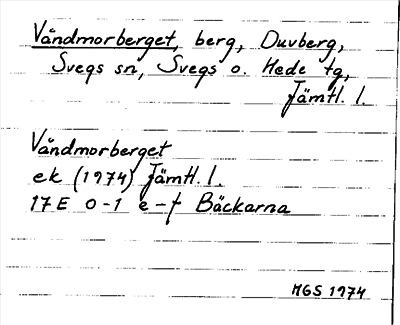 Våndmorberget, berg, Duvberg,
Svegs sn, Svegs o. Hede tg,
Jämtl. l.
Våndmorberget
ek (1974) Jämtl. l.
17E 0-1 e-f Bäckarna
MGS 1974